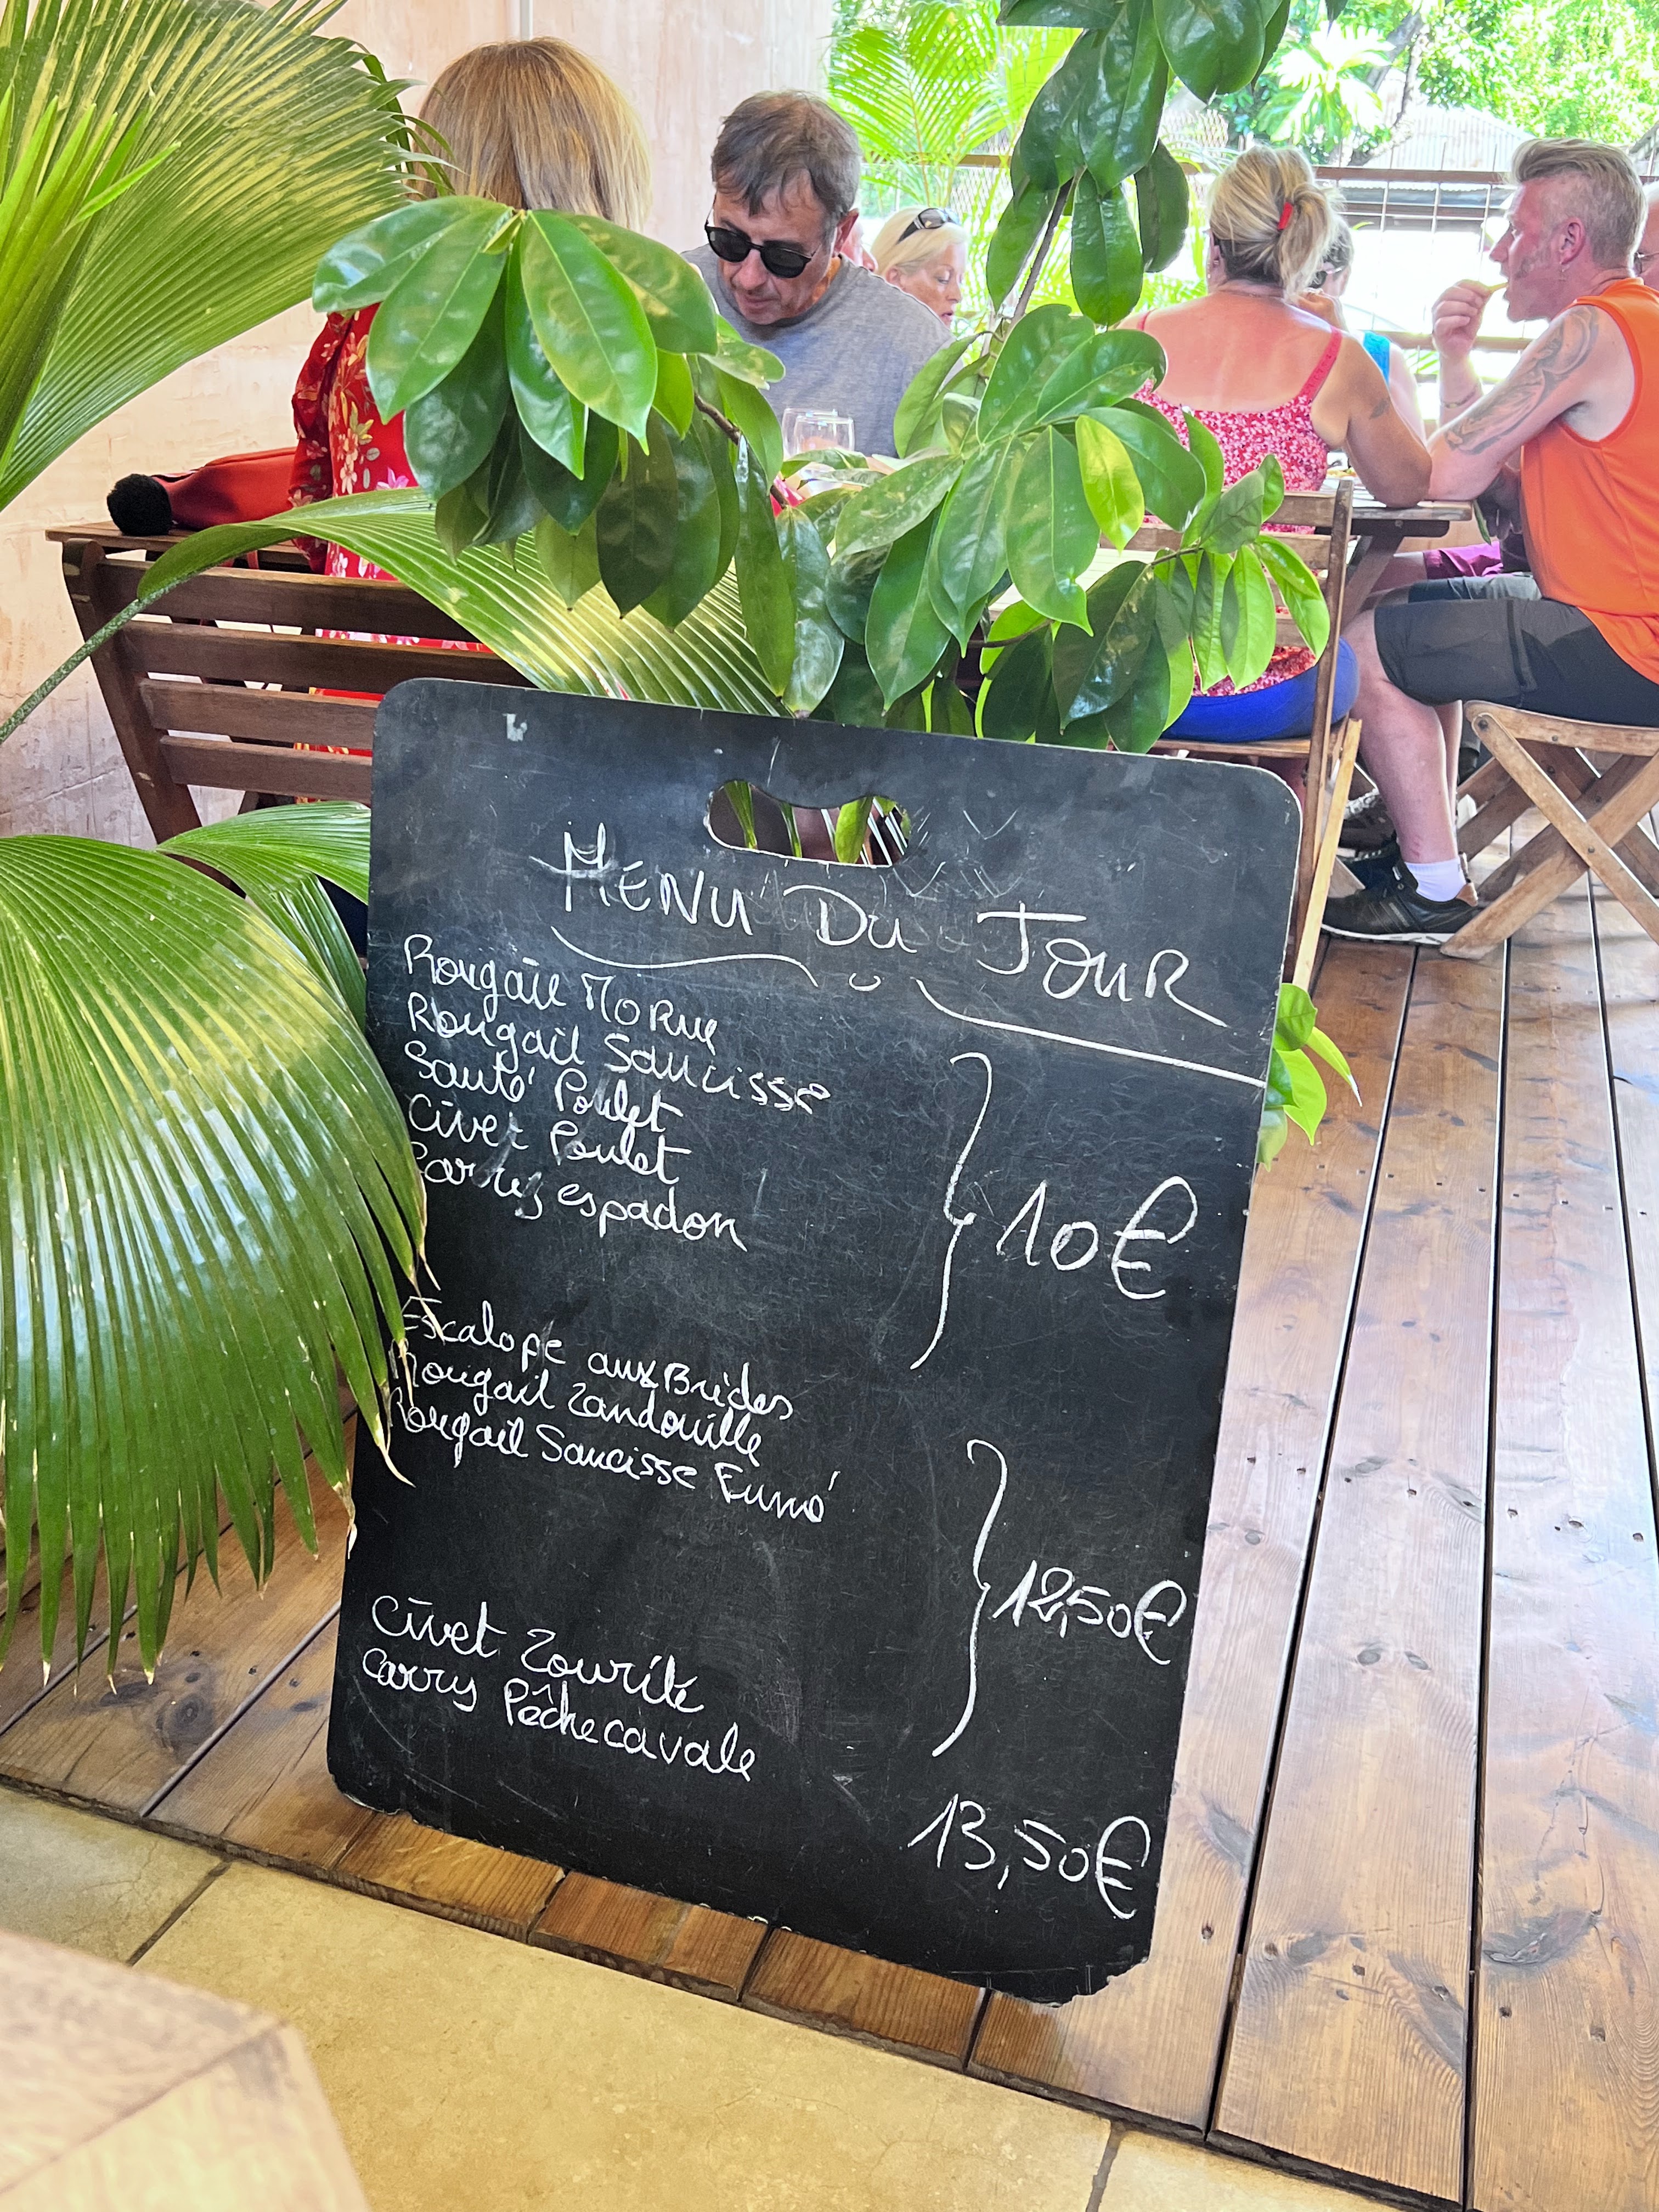 MENU DU JOUR
Rougail MORUE
Rougail Saucisse
Sauté Poulet
Civet Poulet
Carry espadon
Escalope aux Brèdes
Rougail Zandouille
Rougail Saucisse Fumé
10€
12,50€
Civet Zourite
Carry Pêche cavale
13,50€